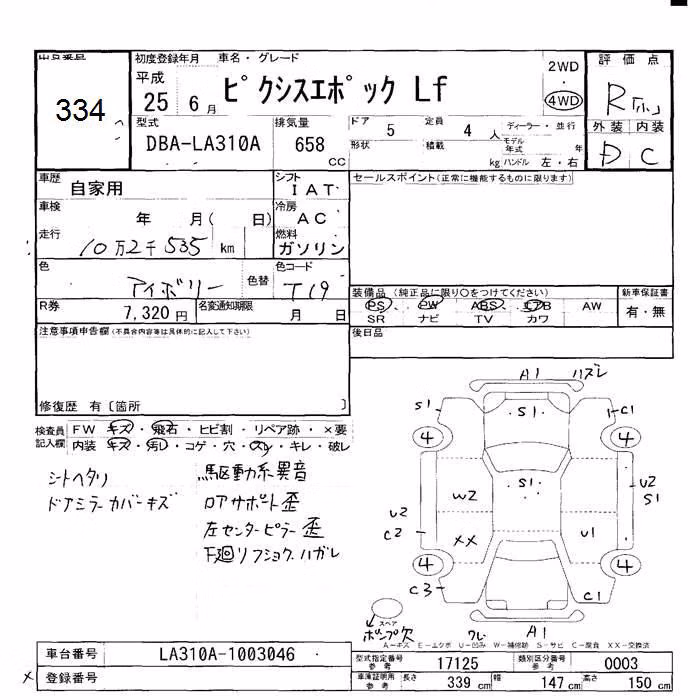 出品番号
334
初度登録年月 車名・グレード
平成
25 6月 ピクシスエポック Lf
2WD
・
4WD
評価点
R「小」
型式 排気量
DBA-LA310A 658 CC
ドア 5 定員 4 人 ディーラー・並行
形状 積載 kg モデル年式 年
ハンドル 左・右
外装 内装
D C
車歴 自家用 シフト IAT
車検 年 月( 日) 冷房 AC
走行 10万2千535 km 燃料 ガソリン
色 アイボリー 色替 色コード T19
R券 7,320円 名変通知期限 月 日
セールスポイント(正常に機能するものに限ります)
装備品 (純正品に限り○をつけてください) 新車保証書
PS PW ABS エアB AW 有・無
SR ナビ TV カワ
後日品
注意事項申告欄(不具合内容等は具体的に記入して下さい)
修復歴 有〔箇所 〕
検査員記入欄 FW キズ・飛石・ヒビ割・リペア跡・×要
内装 キズ・汚レ・コゲ・穴・スレ・キレ・破レ
シートヘタリ 駆動系異音
ドアミラーカバーキズ ロアサポート歪
左センターピラー歪
下廻リフショク、ハガレ
A1 ハズレ
S1 S1 C1
4 4
S1
W2 U2
S1
U2
C2 XX U1
4 4
C3 C1
スペア
ポンプ欠
ワレ A1
A-キズ E-エクボ U-凹み W-補修跡 S-サビ C-腐食 XX-交換済
車台番号 LA310A-1003046
× 登録番号
型式指定番号 参考 17125 類別区分番号 参考 0003
車庫証明用 参考 長さ 339 cm 幅 147 cm 高さ 150 cm